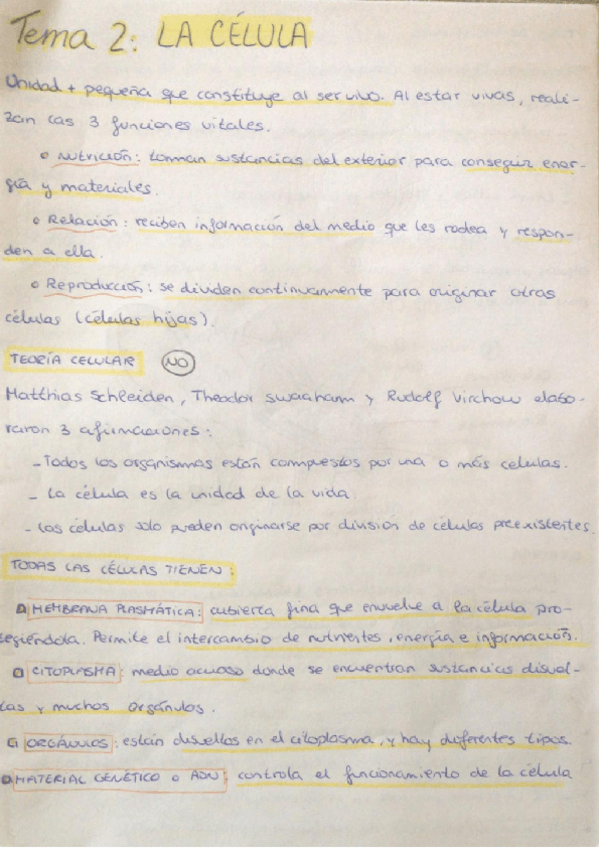 Tema 2: LA CÉLULA
Unidad + pequeña que constituye al ser vivo. Al estar vivas, reali-
zan las 3 funciones vitales.
o Nutrición: toman sustancias del exterior para conseguir ener-
gía y materiales.
o Relación: reciben información del medio que les rodea y respon-
den a ella.
o Reproducción: se dividen continuamente para originar otras
células (células hijas).
TEORÍA CELULAR NO
Matthias Schleiden, Theodor Swaaham y Rudolf Virchow elabo-
raron 3 afirmaciones:
- Todos los organismos están compuestos por una o más celulas.
- La célula es la unidad de la vida.
- Las células solo pueden originarse por división de células preexistentes.
TODAS LAS CÉLULAS TIENEN:
MEMBRANA PLASMÁTICA: cubierta fina que envuelve a la célula pro-
tegiéndola. Permite el intercambio de nutrientes, energía e información.
CITOPLASMA: medio acuoso donde se encuentran sustancias disuel-
tas y muchos orgánulos.
ORGÁNULOS: están disueltos en el citoplasma, y hay diferentes tipos.
MATERIAL GENÉTICO O ADN: controla el funcionamiento de la célula